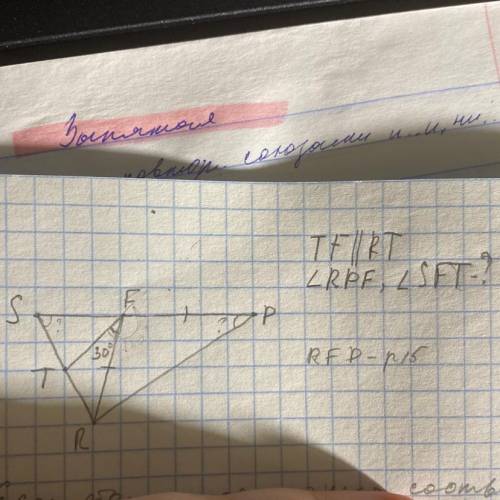 Запятая
повтор. союзами и.. и, ни..
TF || RT
∠RPF, ∠SFT-?
S ?
F
? P
30°
T
RFP - р/б
R